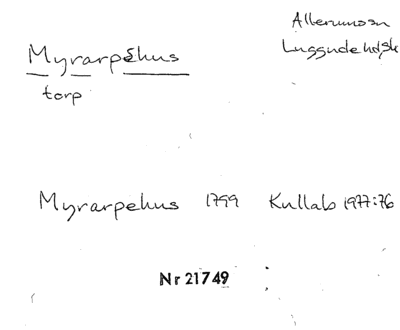 Allerumssn
Luggude hd, Sk
Myrarpehus
torp
Myrarpehus 1799 Kullab 1977:76
Nr 21749